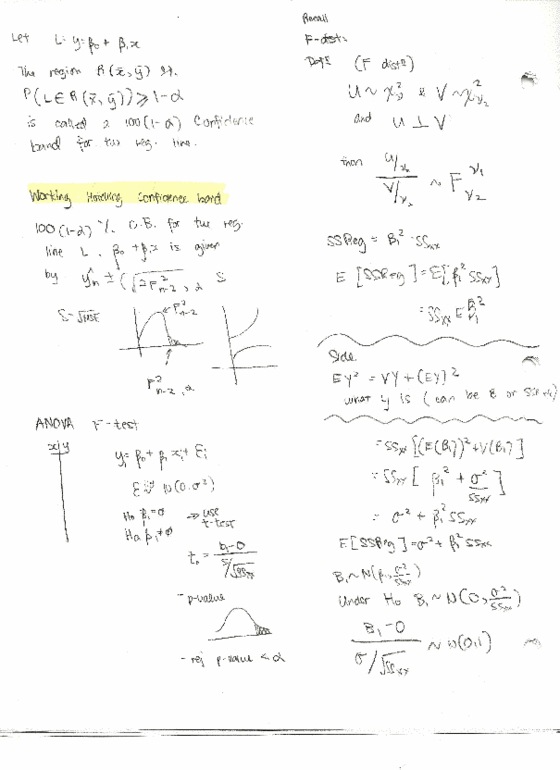 Let L: y = β₀ + β₁x
The region R(x̄, ȳ) st.
P(L ∈ R(x̄, ȳ)) ≥ 1-α
is called a 100(1-α) Confidence
band for the reg. line.
Working Hotelling Confidence band
100(1-α) % C.B. for the reg.
line L: β₀ + β₁x is given
by ŷₙ ± (√2F²ₙ₋₂, α S
S = √MSE
F²ₙ₋₂
F²ₙ₋₂, α
ANOVA F-test
x | y
yᵢ = β₀ + β₁xᵢ + Eᵢ
N(0, σ²)
H₀ β₁ = 0 ⇒ use
Ha β₁ ≠ 0 t-test
t₀ = b₁-0 / S/√SSxx
- p-value
- rej p-value < α
Recall
F-dist:
(F dist)
U ~ χ²ᵥ₁ & V ~ χ²ᵥ₂
and U ⊥ V
then U/ᵥ₁ / V/ᵥ₂ ~ F ᵥ₁ ᵥ₂
SSReg = B₁² · SSxx
E [SSReg] = E[β₁² SSxx]
= SSxx E β₁²
Side
EY² = VY + (EY)²
what y is (can be
= SSxx [(E(B₁))² + V(B₁)]
= SSxx [β₁² + σ²/SSxx]
= σ² + β₁² SSxx
E[SSReg] = σ² + β₁² SSxx
B₁ ~ N(β₁, σ²/SSxx)
Under H₀ B₁ ~ N(0, σ²/SSxx)
B₁-0 / σ/√SSxx ~ N(0,1)